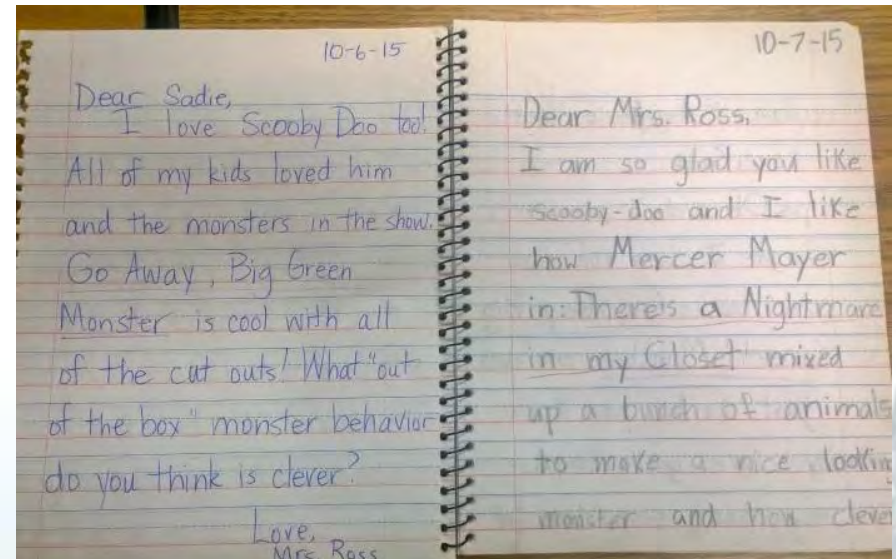 10-6-15
Dear Sadie,
I love Scooby Doo too!
All of my kids loved him
and the monsters in the show.
Go Away, Big Green
Monster is cool with all
of the cut outs! What "out
of the box" monster behavior
do you think is clever?
Love,
Mrs. Ross
10-7-15
Dear Mrs. Ross,
I am so glad you like
scooby-doo and I like
how Mercer Mayer
in: There's a Nightmare
in my Closet" mixed
up a bunch of animals
to make a nice looking
monster and how clever